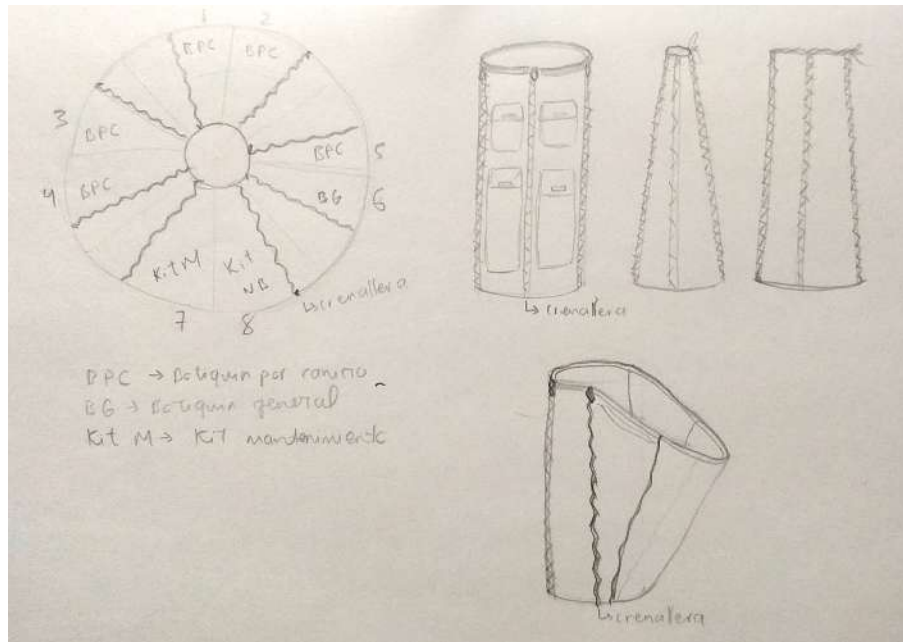 1 2
BPC BPC
3
BPC
BPC 5
4
BPC
BG 6
Kit M
Kit
NB
↳ crenallera
7 8
↳ crenallera
BPC → Botiquin por
BG → Botiquin general
Kit M → Kit mantenimiento
↳ crenallera